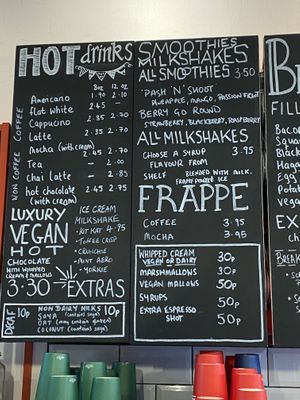 HOT drinks
8oz 12oz
Americano 1.90 2.10
Flat white 2.45 —
Cappucino 2.35 2.70
Latte 2.35 2.70
Mocha (with cream) 2.45 2.70
Tea — 2.00
Chai latte — 2.85
hot chocolate 2.45 2.75
(with cream)
NON COFFEE COFFEE
LUXURY
VEGAN
HOT
CHOCOLATE
WITH WHIPPED
CREAM & MALLOWS
3.30
ICE CREAM
MILKSHAKE
KIT KAT 4.95
TOFFEE CRISP
CRUNCHIE
MINT AERO
YORKIE
EXTRAS
DECAF 10p
NON DAIRY MILKS
SOYA (contains soya)
OAT (may contain gluten)
COCONUT (contains soya)
10p
SMOOTHIES
MILKSHAKES
ALL SMOOTHIES 3.50
'PASH 'N' SHOOT
PINEAPPLE, MANGO, PASSION FRUIT
BERRY GO ROUND
STRAWBERRY, BLACKBERRY, RASPBERRY
ALL MILKSHAKES
CHOOSE A SYRUP 3.95
FLAVOUR FROM
SHELF BLENDED WITH MILK,
FRAPPE POWDER ICE
FRAPPE
COFFEE 3.95
MOCHA 3.95
WHIPPED CREAM 30p
VEGAN OR DAIRY
MARSHMALLOWS 30p
VEGAN MALLOWS 50p
SYRUPS 50p
EXTRA ESPRESSO
SHOT 50p
FILL